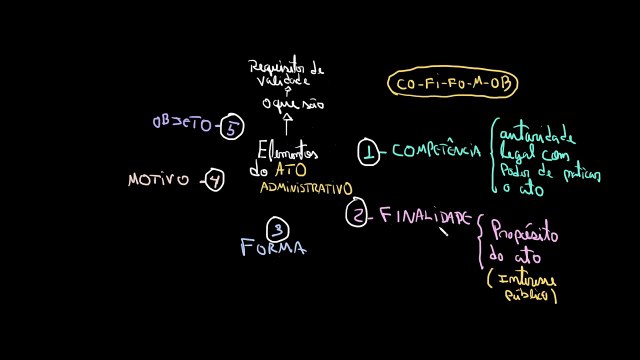 Requisitos de
validade
O que são
CO-FI-FO-M-OB
OBJETO - 5
Elementos
do ATO
ADMINISTRATIVO
1 - COMPETÊNCIA
autoridade
legal com
Poder de praticar
o ato
MOTIVO - 4
2 - FINALIDADE
Propósito
do ato
(Interesse
público)
3
FORMA